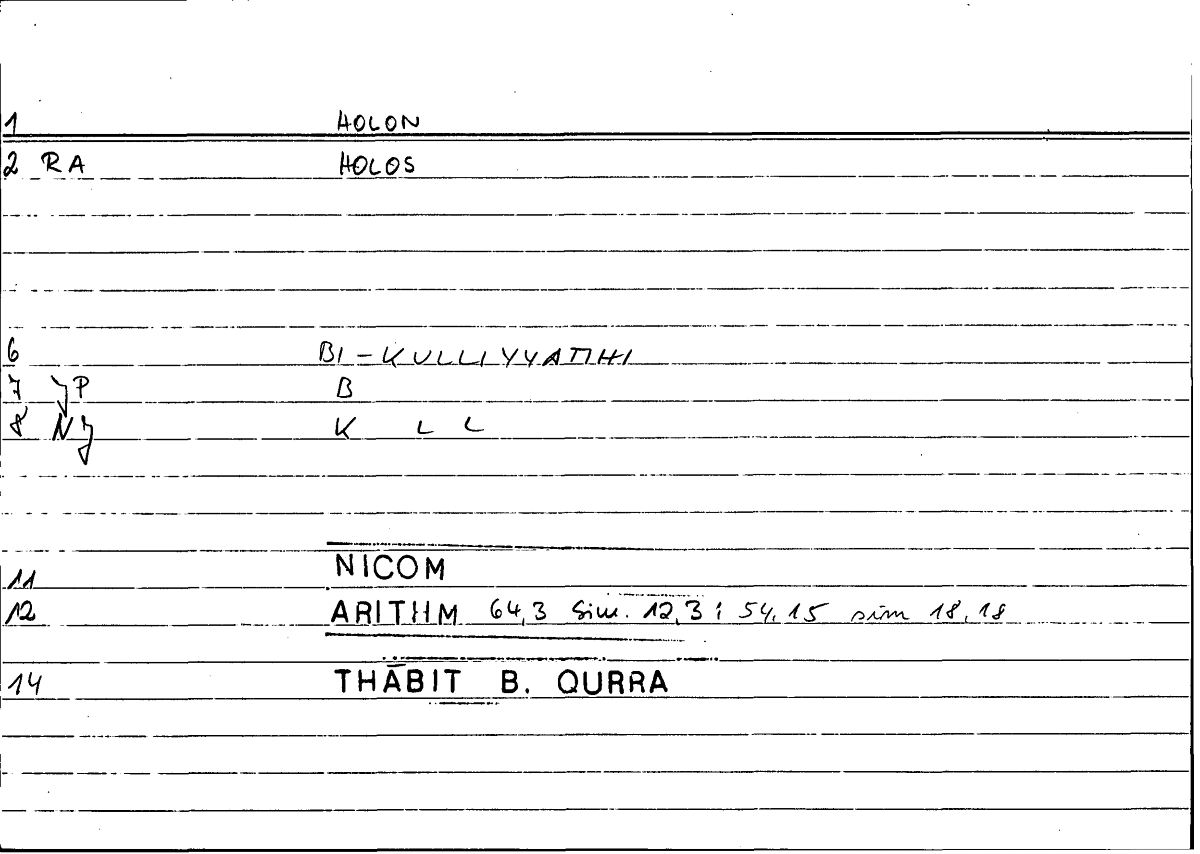 1 HOLON
2 RA HOLOS
6 BI-KULLIYYATIHI
7 P B
8 N K L L
11 NICOM
12 ARITHM 64,3 Sim. 12,3; 54,15 sim 18,18
14 THĀBIT B. QURRA